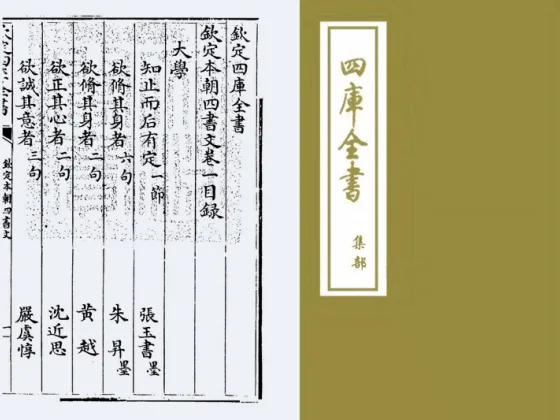 欽定四庫全書
欽定本朝四書文卷一目録
大學
知止而后有定一節 張玉書墨
欲脩其身者六句 朱昇墨
欲脩其身者二句 黄越
欲正其心者二句 沈近思
欲誠其意者三句 嚴虞惇
欽定四庫全書
欽定本朝四書文
四庫全書
集部